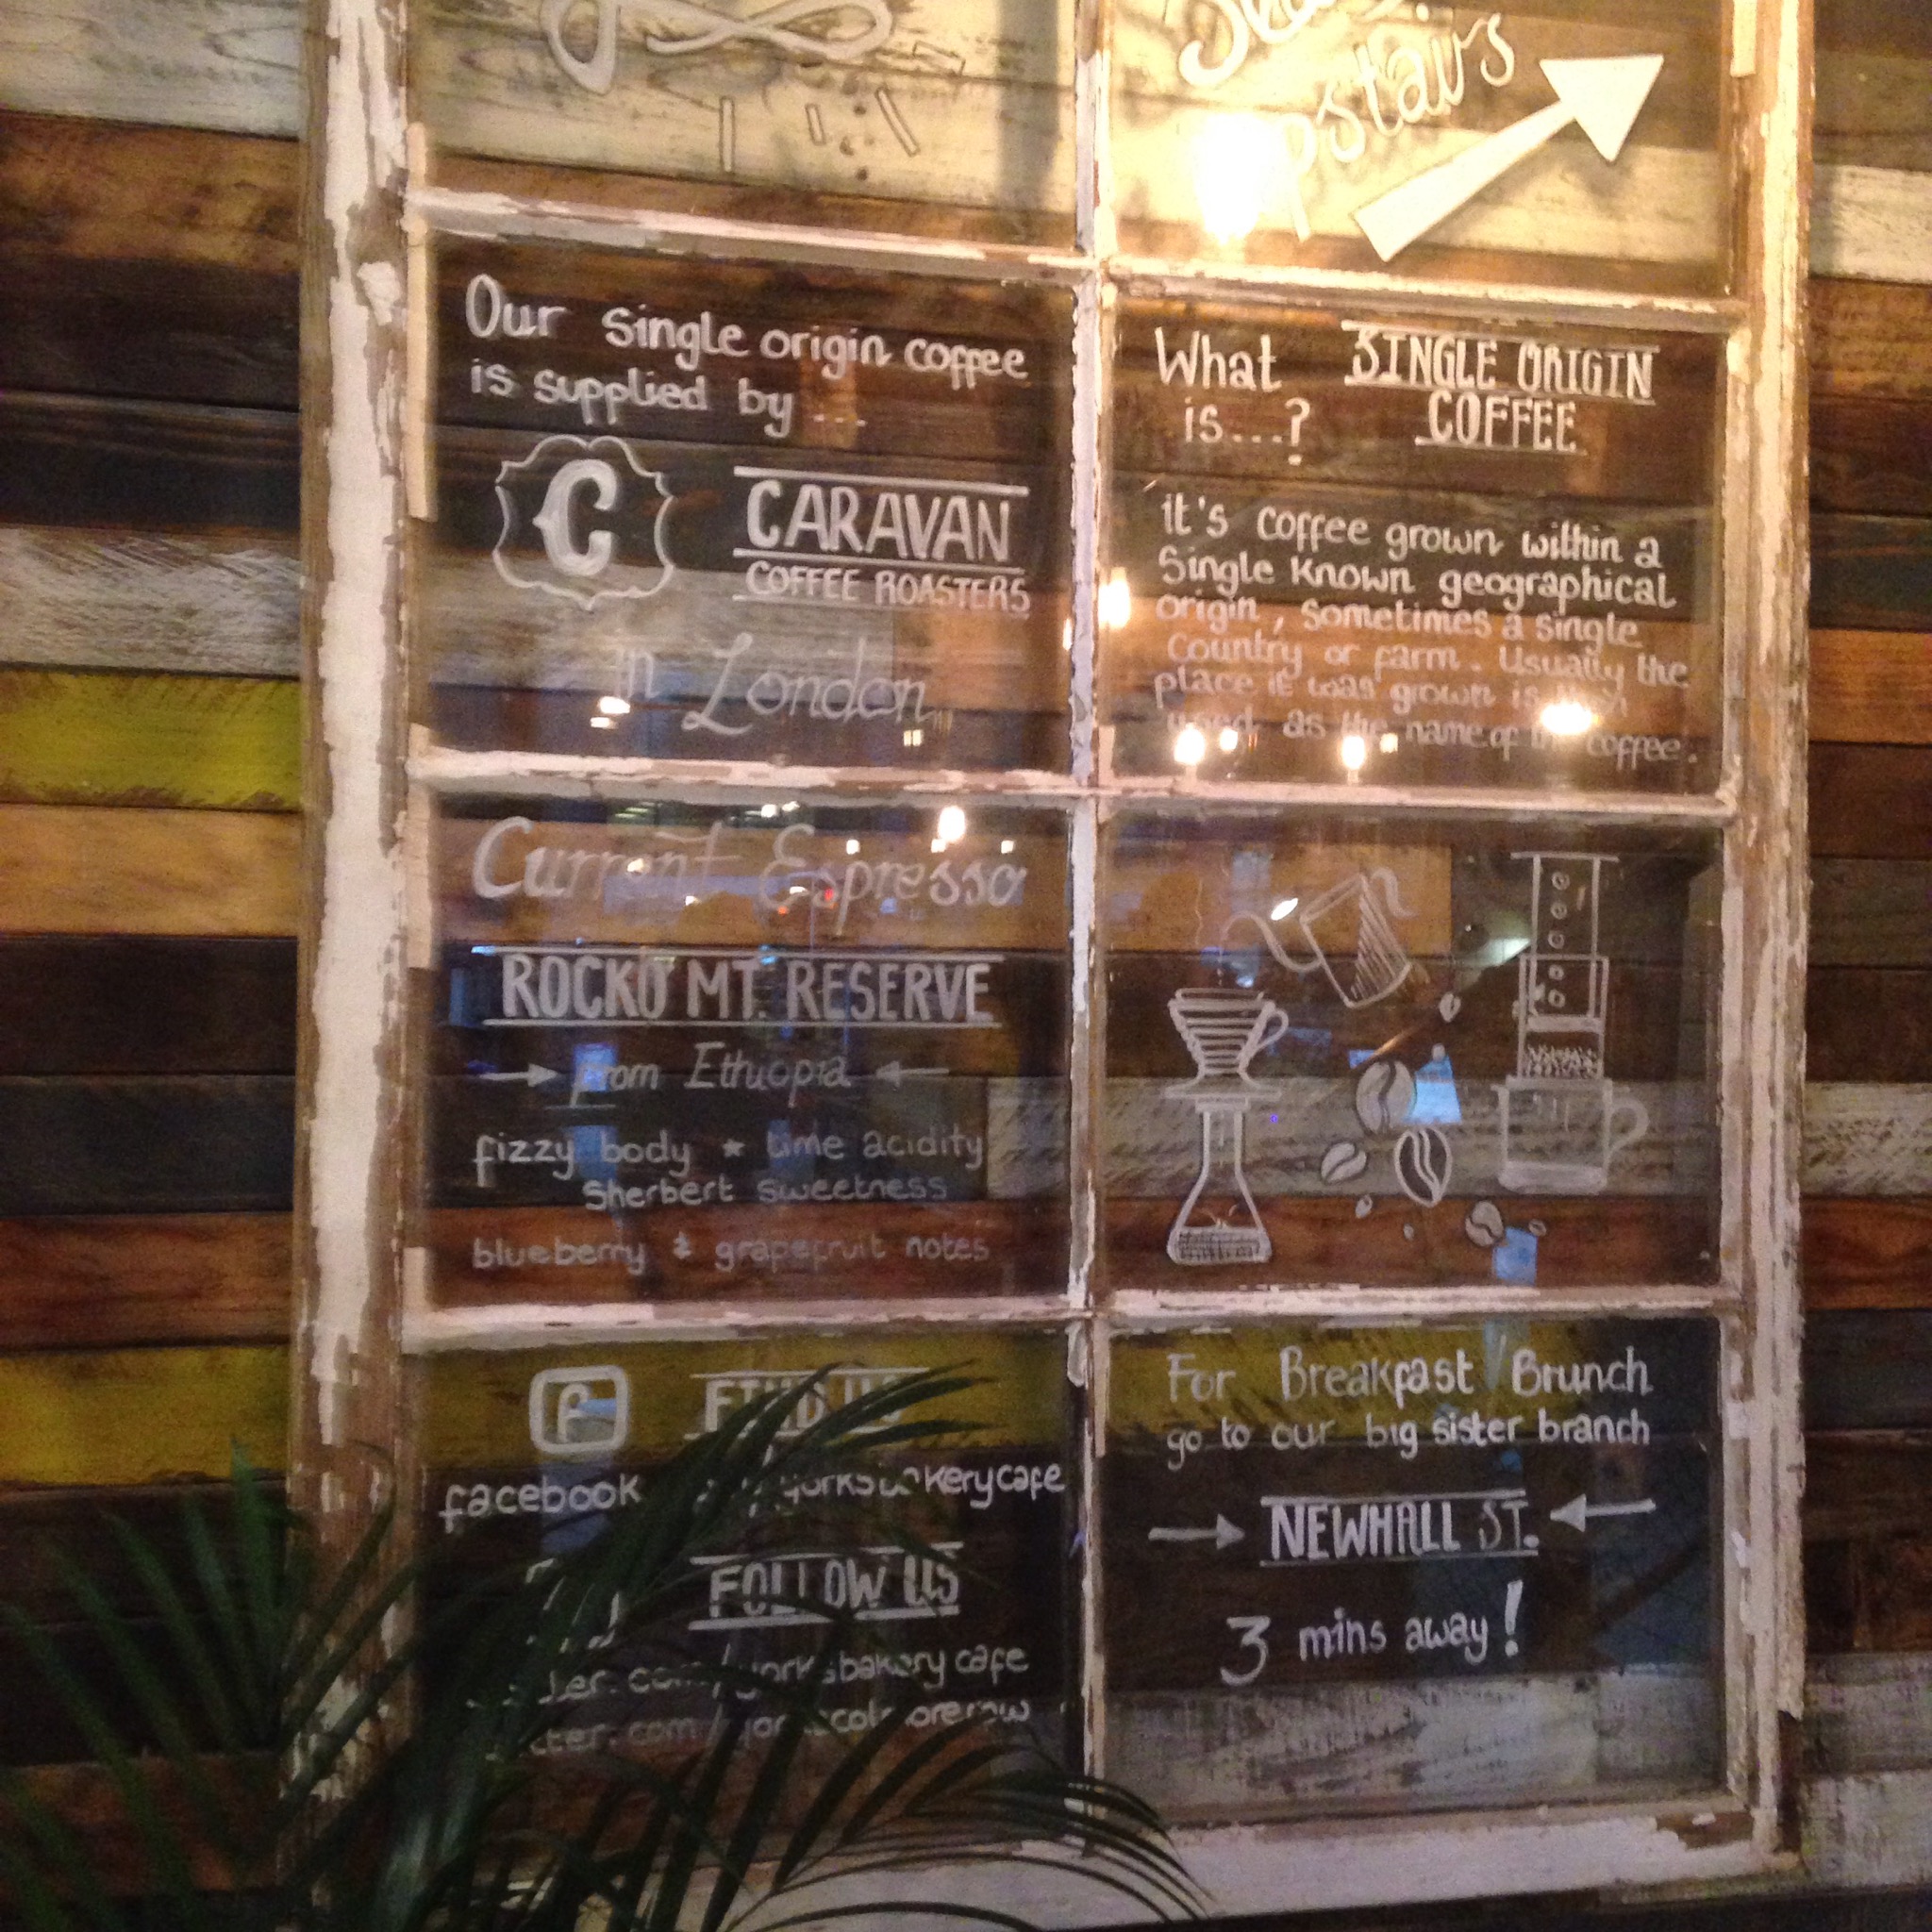 upstairs
Our single origin coffee
is supplied by ...
C
CARAVAN
COFFEE ROASTERS
in London
What
is...?
SINGLE ORIGIN
COFFEE
it's coffee grown within a
single known geographical
origin, sometimes a single
country or farm. Usually the
place it was grown is
used as the name of the coffee.
Current Espresso
ROCKO MT. RESERVE
from Ethiopia
fizzy body * lime acidity
Sherbert sweetness
blueberry & grapefruit notes
f
FIND US
facebook yorksbakerycafe
FOLLOW US
yorksbakerycafe
For Breakfast / Brunch
go to our big sister branch
NEWHALL ST.
3 mins away!